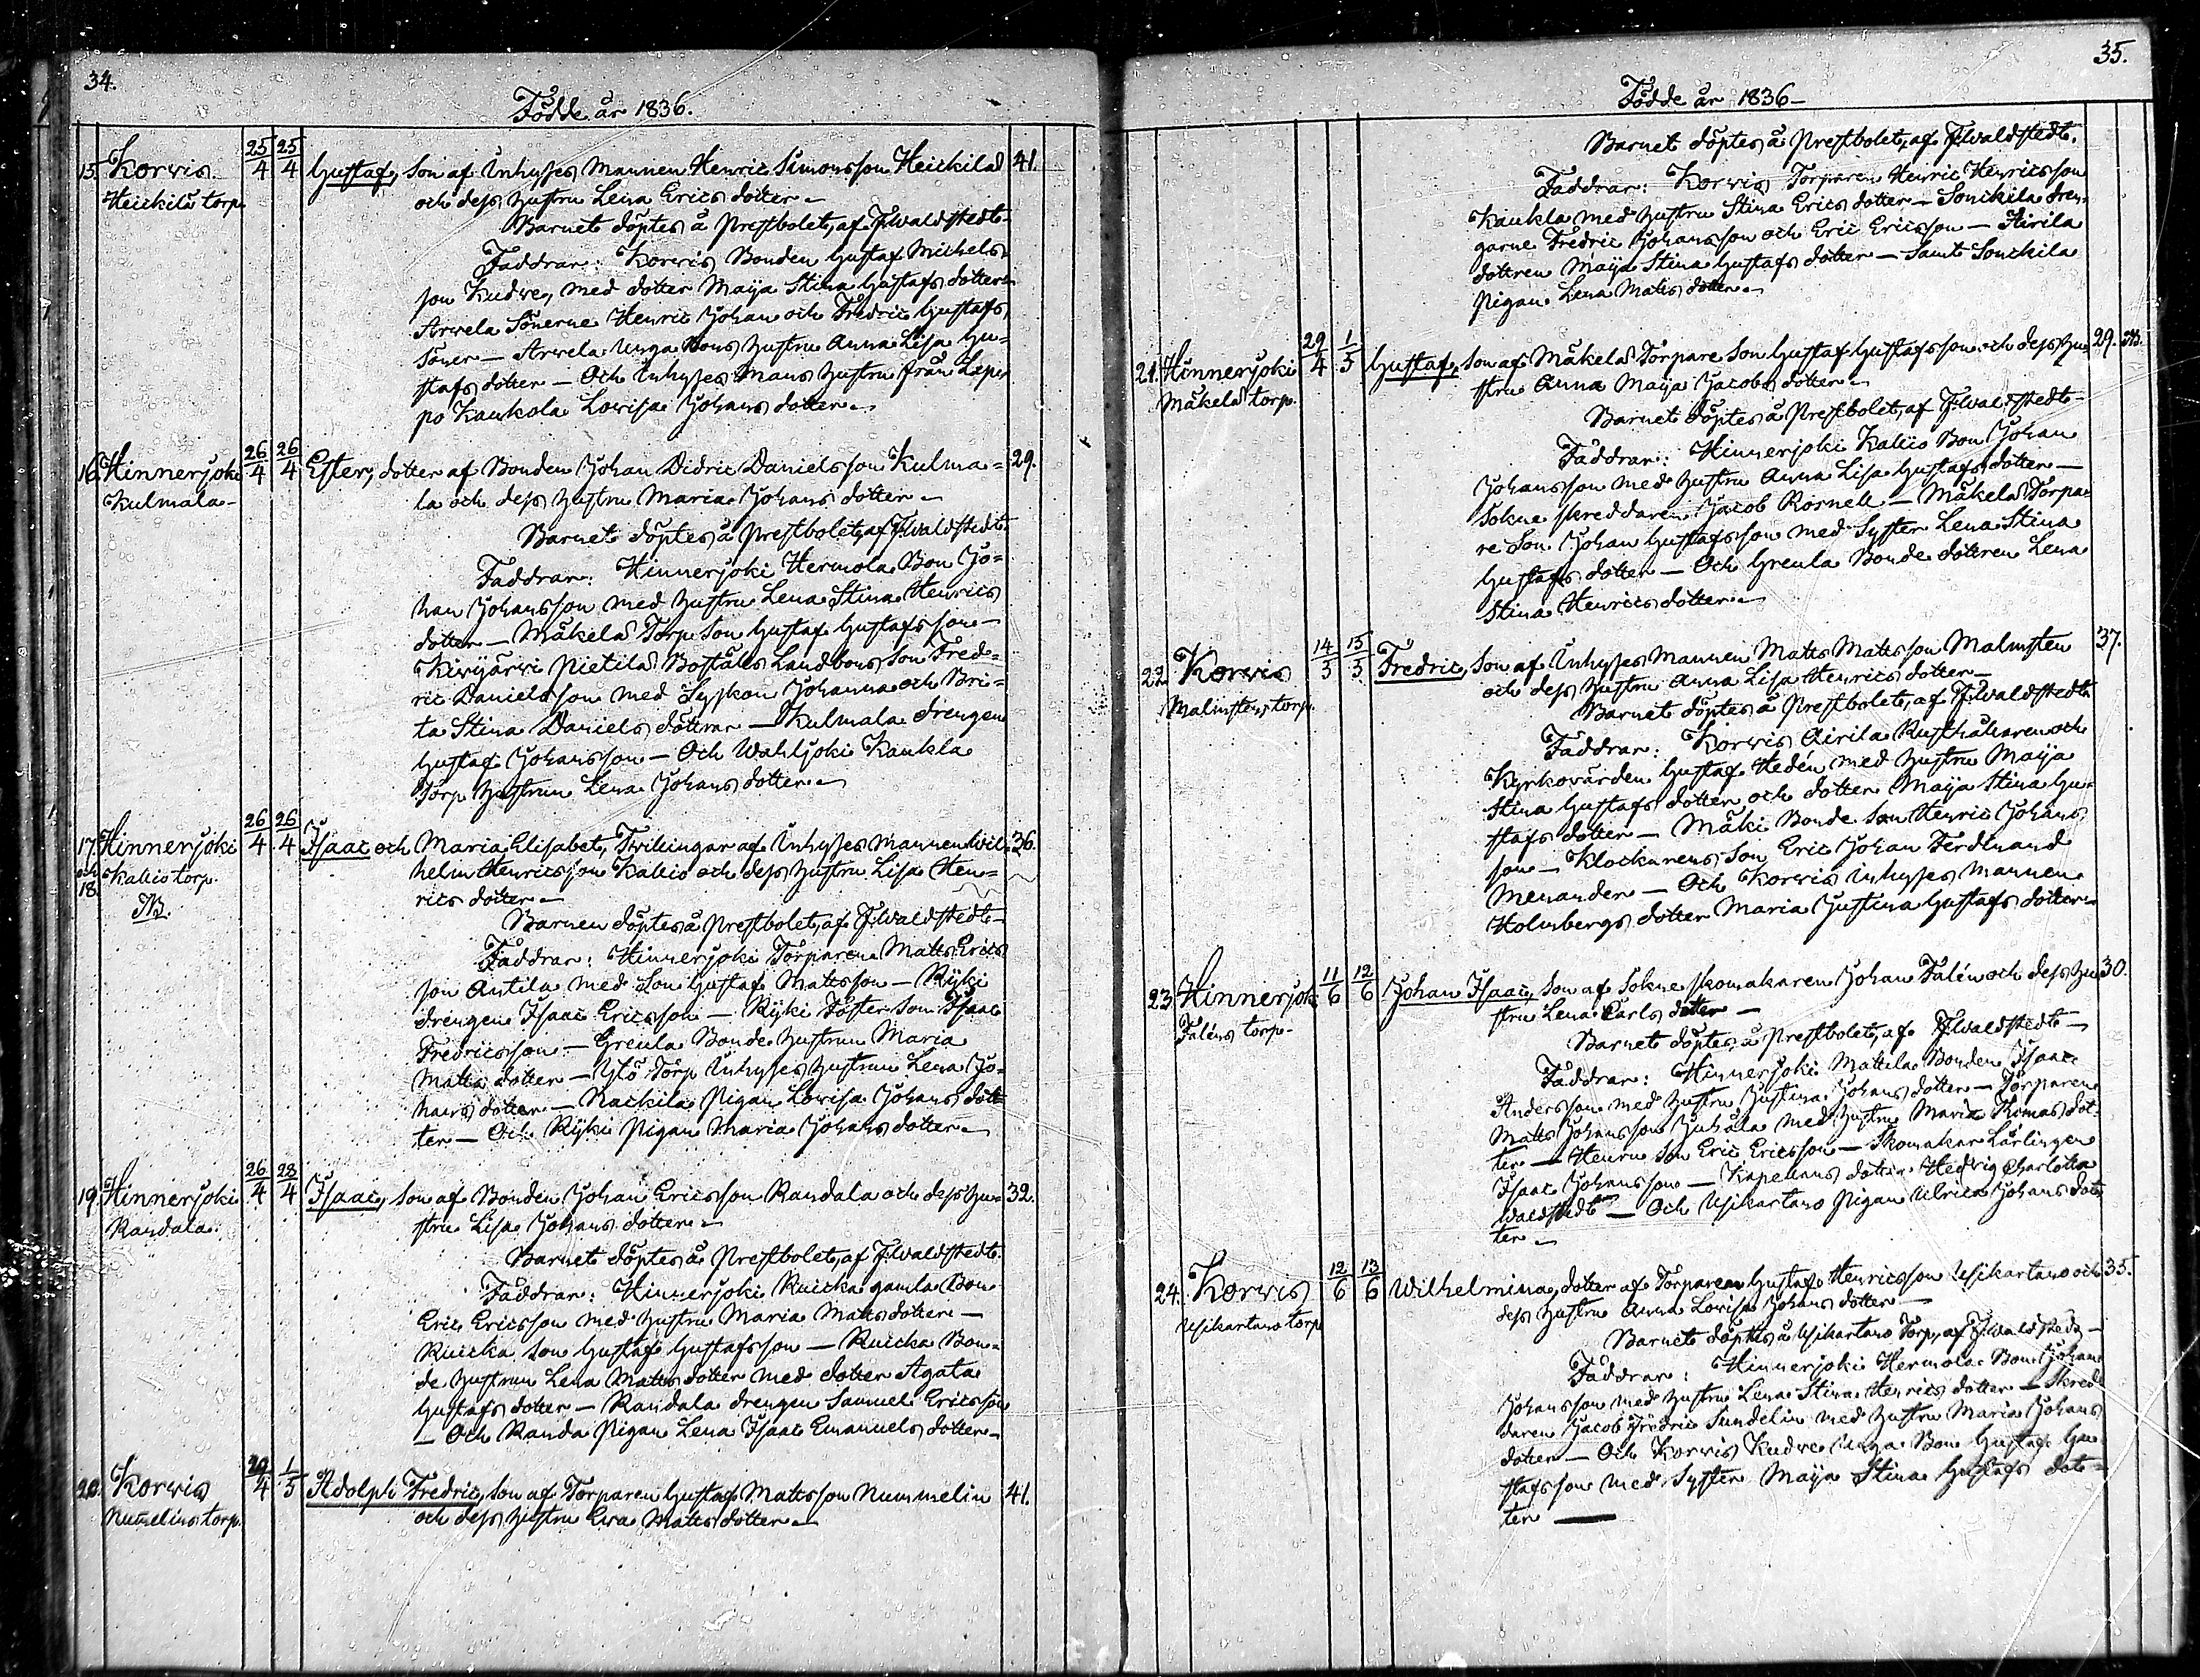 34.
Födde år 1836.
15. Korvis 25/4 25/4 Gustaf, Son af Inhyses Mannen Henric Simonsson Heickilä 41.
Heickilä torp. och dess hustru Lena Erics dotter.
Barnet döptes å Prestbolet, af F. Waldstedt.
Faddrar: Korvis Bonden Gustaf Michels-
son Kudve, med dotter Maija Stina Gustafs dotter
Arvela Sönerne Henric Johan och Fredric Gustafs
Söner — Arvela unga Bons hustru Anna Lisa Gu-
stafs dotter — Och Inhyses Mans hustru från Lep-
po Kaukola Lovisa Johans dotter.
16. Hinnerjoki 26/4 26/4 Ester, dotter af Bonden Johan Didric Danielsson Kulma- 29.
Kulmala la och dess hustru Maria Johans dotter
Barnet döptes å Prestbolet, af F. Waldstedt
Faddrar: Hinnerjoki Hermola Bon Jo-
han Johansson med hustru Lena Stina Henrics
dotter — Mäkelä Torp. Son Gustaf Gustafsson —
Kivijärvi Pietilä Boställs Landbons Son Fred-
ric Danielsson med Syskon Johanna och Bri-
ta Stina Daniels döttrar — Kulmala drengen
Gustaf Johansson — Och Wahljoki Kaukla
Torp. hustrun Lena Johans dotter.
17. Hinnerjoki 26/4 26/4 Isaac och Maria Elisabet, Tvillingar af Inhyses Mannen Wil- 36.
och
18 Kallio torp. helm Henricsson Kallio och dess hustru Lisa Hen-
NB. rics dotter
Barnen döptes å Prestbolet, af F. Waldstedt
Faddrar: Hinnerjoki Torparen Matts Erics
son Antila med Son Gustaf Mattsson — Ryki
drengen Isaac Ericsson — Ryki Foster Son Isaac
Fredricsson — Greula Bonde hustrun Maria
Matts dotter — Torp Inhyses hustrun Lena Jo-
hans dotter — Rackila Pigan Lovisa Johans dot-
ter — Och Ryki Pigan Maria Johans dotter
19. Hinnerjoki 26/4 28/4 Isaac, Son af Bonden Johan Ericsson Randala och dess hu- 32.
Randala. stru Lisa Johans dotter
Barnet döptes å Prestbolet, af F. Waldstedt.
Faddrar: Hinnerjoki Ruicka gamla Bon
Eric Ericsson med hustru Maria Matts dotter —
Ruicka Son Gustaf Gustafsson — Ruicka Bon-
de hustrun Lena Matts dotter med dotter Agata
Gustafs dotter — Randala drengen Samuel Ericsson
— Och Randa Pigan Lena Isaac Emanuels dotter
20. Korvis 29/4 1/5 Adolph Fredric, Son af Torparen Gustaf Mattsson Nummelin 41.
Numelins torp. och dess hustru Eva Matts dotter
35.
Födde år 1836
Barnet döptes å Prestbolet, af F. Waldstedt.
Faddrar: Korvis Torparen Henric Henricsson
Kaukla med hustru Stina Erics dotter — Sonckila dren-
garne Fredric Johansson och Eric Ericsson — Airila
dottren Maija Stina Gustafs dotter — Samt Sonckila
Pigan Lena Matts dotter
21. Hinnerjoki 29/4 1/5 Gustaf, Son af Mäkelä Torpare Son Gustaf Gustafsson och dess hu- 29. NB.
Mäkelä torp. stru Anna Maija Jacobs dotter
Barnet döptes å Prestbolet, af F. Waldstedt
Faddrar: Hinnerjoki Kallio Bon Johan
Johansson med hustru Anna Lisa Gustafs dotter —
Sokne skreddaren Jacob Rornell — Mäkelä Torpa-
re Son Johan Gustafsson med Syster Lena Stina
Gustafs dotter — Och Greula Bonde dottren Lena
Stina Henrics dotter
22. Korvis 14/5 15/5 Fredric, Son af Inhyses Mannen Matts Mattsson Malmsten 37.
Malmstens torp. och dess hustru Anna Lisa Henrics dotter
Barnet döptes å Prestbolet, af F. Waldstedt
Faddrar: Korvis Airila Rusthållaren och
Kyrkovärden Gustaf Hedén med hustru Maija
Stina Gustafs dotter och dotter Maija Stina Gu-
stafs dotter — Mäki Bonde Son Henric Johans
son — Klockarens Son Eric Johan Ferdinand
Menander — Och Korvis Inhyses Mannen
Holmbergs dotter Maria Justina Gustafs dotter
23. Hinnerjoki 11/6 12/6 Johan Isaac, Son af Sokne skomakaren Johan Falén och dess hu- 30.
Faléns torp. stru Lena Carls dotter —
Barnet döptes å Prestbolet, af F. Waldstedt —
Faddrar: Hinnerjoki Mattila Bonden Isaac
Andersson med hustru Justina Johans dotter — Torparen
Matts Johansson Juhala med hustru Maria Thomas dot-
ter — Son Eric Ericsson — Skomakar Lärlingen
Isaac Johansson — Kapellans dotter Hedvig Charlotta
Waldstedt — Och Usikartano Pigan Ulrica Johans dot-
ter —
24. Korvis 12/6 13/6 Wilhelmina, dotter af Torparen Gustaf Henricsson Usikartano och 35.
Usikartano torp dess hustru Anna Lovisa Johans dotter —
Barnet döptes å Usikartano Torp, af F. Waldstedt —
Faddrar: Hinnerjoki Hermola Bon Johan
Johansson med hustru Lena Stina Henrics dotter — Skred-
daren Jacob Fredric Sundelin med hustru Maria Johans
dotter — Och Korvis Kudve unga Bon Gustaf Gu-
stafsson med Syster Maija Stina Gustafs dot-
ter —